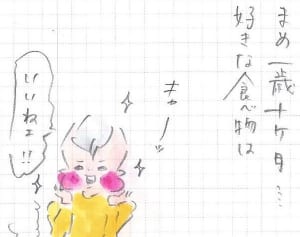 まめ一歳十ヶ月…
好きな食べ物は
キャーッ
いいねェ!!